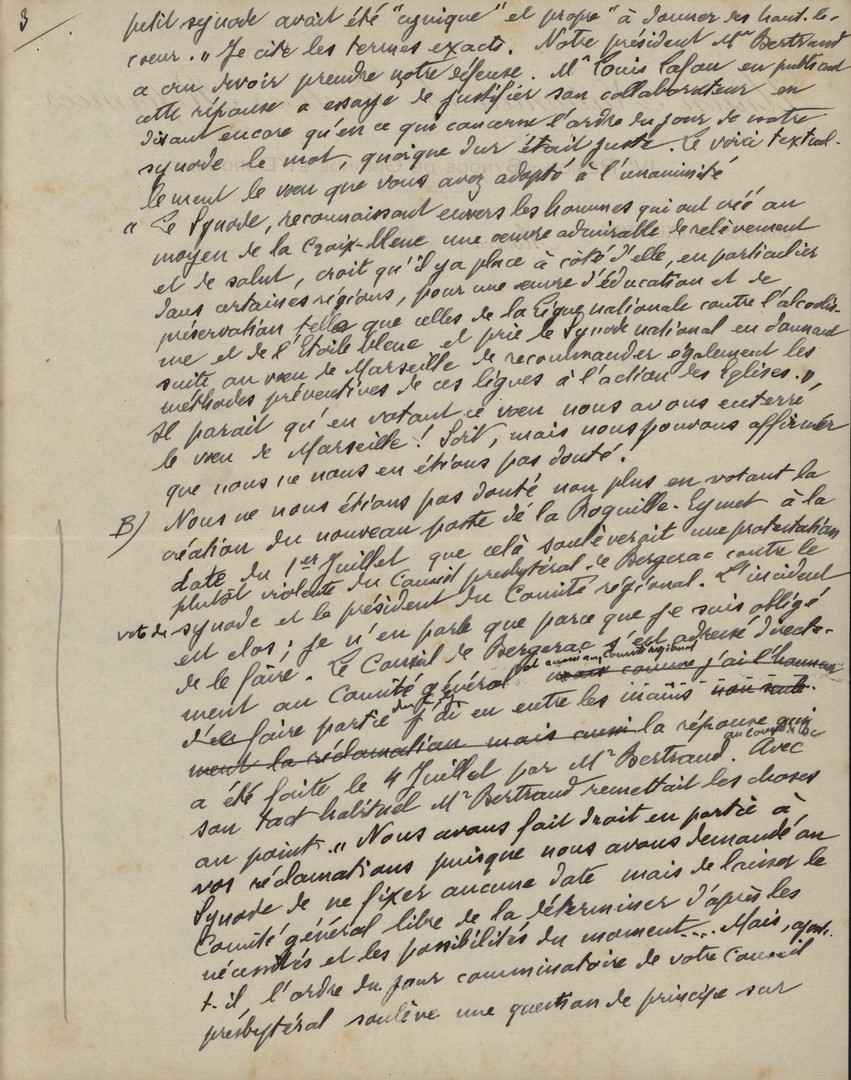 3
petit synode avait été "cynique" et propre "à donner des haut-le-
cœur." Je cite les termes exacts. Notre président Mr Bertrand
a cru devoir prendre notre défense. Mr Louis Lafon en publiant
cette réponse a essayé de justifier son collaborateur en
disant encore qu'en ce qui concerne l'ordre du jour de notre
synode le mot, quoique dur était juste. Le voici textuel-
lement le vœu que vous avez adopté à l'unanimité
" Le Synode, reconnaissant envers les hommes qui ont créé au
moyen de la Croix-bleue une œuvre admirable de relèvement
et de salut, croit qu'il y a place à côté d'elle, en particulier
dans certaines régions, pour une œuvre d'éducation et de
préservation telle que celles de la Ligue nationale contre l'alcolis-
me et de l'Etoile bleue et prie le Synode national en donnant
suite au vœu de Marseille de recommander également les
méthodes préventives de ces ligues à l'action des Eglises."
Il parait qu'en votant ce vœu nous avons enterré
le vœu de Marseille ! Soit, mais nous pouvons affirmer
que nous ne nous en étions pas douté.
B) Nous ne nous étions pas douté non plus en votant la
création du nouveau poste de la Roquille-Eymet à la
date du 1er Juillet que celà soulèverait une protestation
plutôt violente du Conseil presbytéral de Bergerac contre le
vote du synode et le président du Comité régional. L'incident
est clos ; je n'en parle que parce que je suis obligé
de le faire. Le Conseil de Bergerac s'est adressé directe-
ment au Comité général et aussi au Comité régional mais comme j'ai l'honneur
d'en faire partie j'ai eu entre les mains non seule-
ment la réclamation mais aussi la réponse qui
a été faite le 4 Juillet par Mr Bertrand. Avec
son tact habituel Mr Bertrand remettait les choses
au point. " Nous avons fait droit en partie à
vos réclamations puisque nous avons demandé au
Synode de ne fixer aucune date mais de laisser le
Comité général libre de la déterminer d'après les
nécessités et les possibilités du moment.... Mais, ajout-
t-il l'ordre du jour comminatoire de votre Conseil
presbytéral soulève une question de principe sur